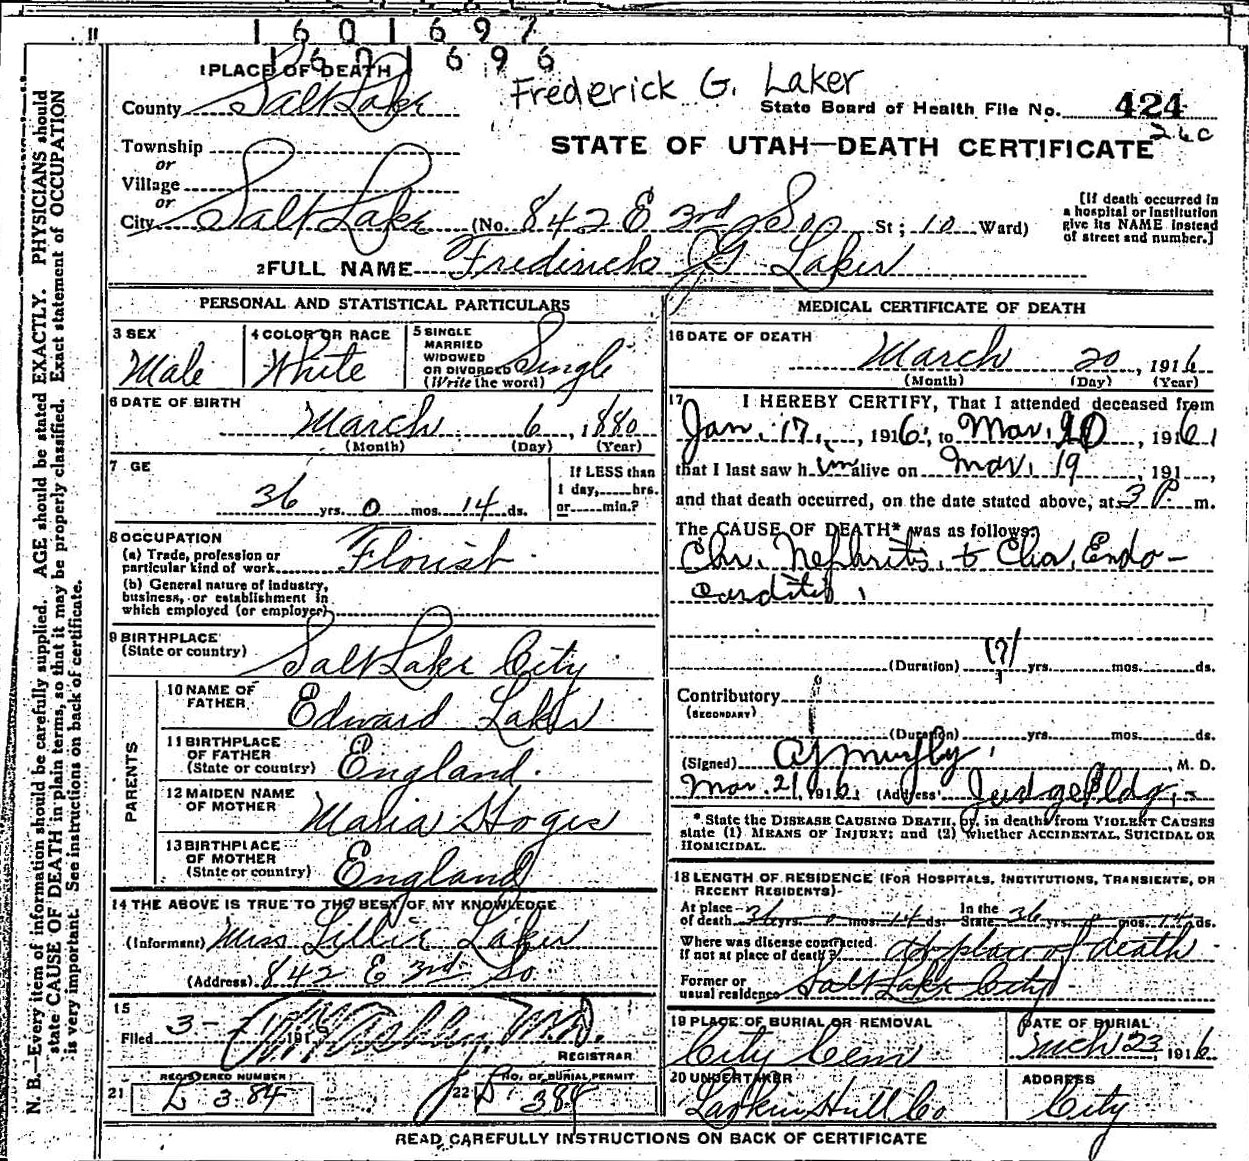 1 6 0 1 6 9 7
1 6 0 1 6 9 6
1 PLACE OF DEATH
Frederick G. Laker
County Salt Lake
State Board of Health File No. 424
26c
Township
or
STATE OF UTAH—DEATH CERTIFICATE
Village
or
City Salt Lake (No. 842 E 3rd So St; 10 Ward)
[If death occurred in
a hospital or institution
give its NAME instead
of street and number.]
2 FULL NAME Frederick G Laker
PERSONAL AND STATISTICAL PARTICULARS
3 SEX
Male
4 COLOR OR RACE
White
5 SINGLE
MARRIED
WIDOWED
OR DIVORCED
(Write the word)
Single
6 DATE OF BIRTH
March 6, 1880
(Month) (Day) (Year)
7 GE
36 yrs. 0 mos. 14 ds.
If LESS than
1 day, hrs.
or min.?
8 OCCUPATION
(a) Trade, profession or
particular kind of work
Florist
(b) General nature of industry,
business, or establishment in
which employed (or employer)
9 BIRTHPLACE
(State or country)
Salt Lake City
PARENTS
10 NAME OF
FATHER
Edward Laker
11 BIRTHPLACE
OF FATHER
(State or country)
England.
12 MAIDEN NAME
OF MOTHER
Maria
13 BIRTHPLACE
OF MOTHER
(State or country)
England
14 THE ABOVE IS TRUE TO THE BEST OF MY KNOWLEDGE
(Informant) Miss Lillie Laker
(Address) 842 E 3rd So
15
Filed 3- 191
M.D.
REGISTRAR
21
REGISTERED NUMBER
L 384
22
NO. OF BURIAL PERMIT
384
MEDICAL CERTIFICATE OF DEATH
16 DATE OF DEATH
March 20, 1916
(Month) (Day) (Year)
17 I HEREBY CERTIFY, That I attended deceased from
Jan. 17, 1916, to Mar. 20, 1916,
that I last saw h im alive on Mar. 19, 191
and that death occurred, on the date stated above, at 3 P. m.
The CAUSE OF DEATH* was as follows:
Chr. Nephritis, Endo-
carditis.
(Duration) (?) yrs. mos. ds.
Contributory
(SECONDARY)
(Duration) yrs. mos. ds.
(Signed) M. D.
Mar. 21, 1916 (Address) Judge Bldg.
*State the DISEASE CAUSING DEATH, or, in deaths from VIOLENT CAUSES
state (1) MEANS OF INJURY; and (2) whether ACCIDENTAL, SUICIDAL OR
HOMICIDAL.
18 LENGTH OF RESIDENCE (FOR HOSPITALS, INSTITUTIONS, TRANSIENTS, OR
RECENT RESIDENTS)
At place
of death 36 yrs. 0 mos. 14 ds.
In the
State 36 yrs. 0 mos. 14 ds.
Where was disease contracted
if not at place of death? At place of death
Former or
usual residence Salt Lake City
19 PLACE OF BURIAL OR REMOVAL
City Cem
DATE OF BURIAL
Mch 23, 1916
20 UNDERTAKER
Larkin Hull Co
ADDRESS
City
READ CAREFULLY INSTRUCTIONS ON BACK OF CERTIFICATE
N. B.—Every item of information should be carefully supplied. AGE should be stated EXACTLY. PHYSICIANS should
state CAUSE OF DEATH in plain terms, so that it may be properly classified. Exact statement of OCCUPATION
is very important. See instructions on back of certificate.